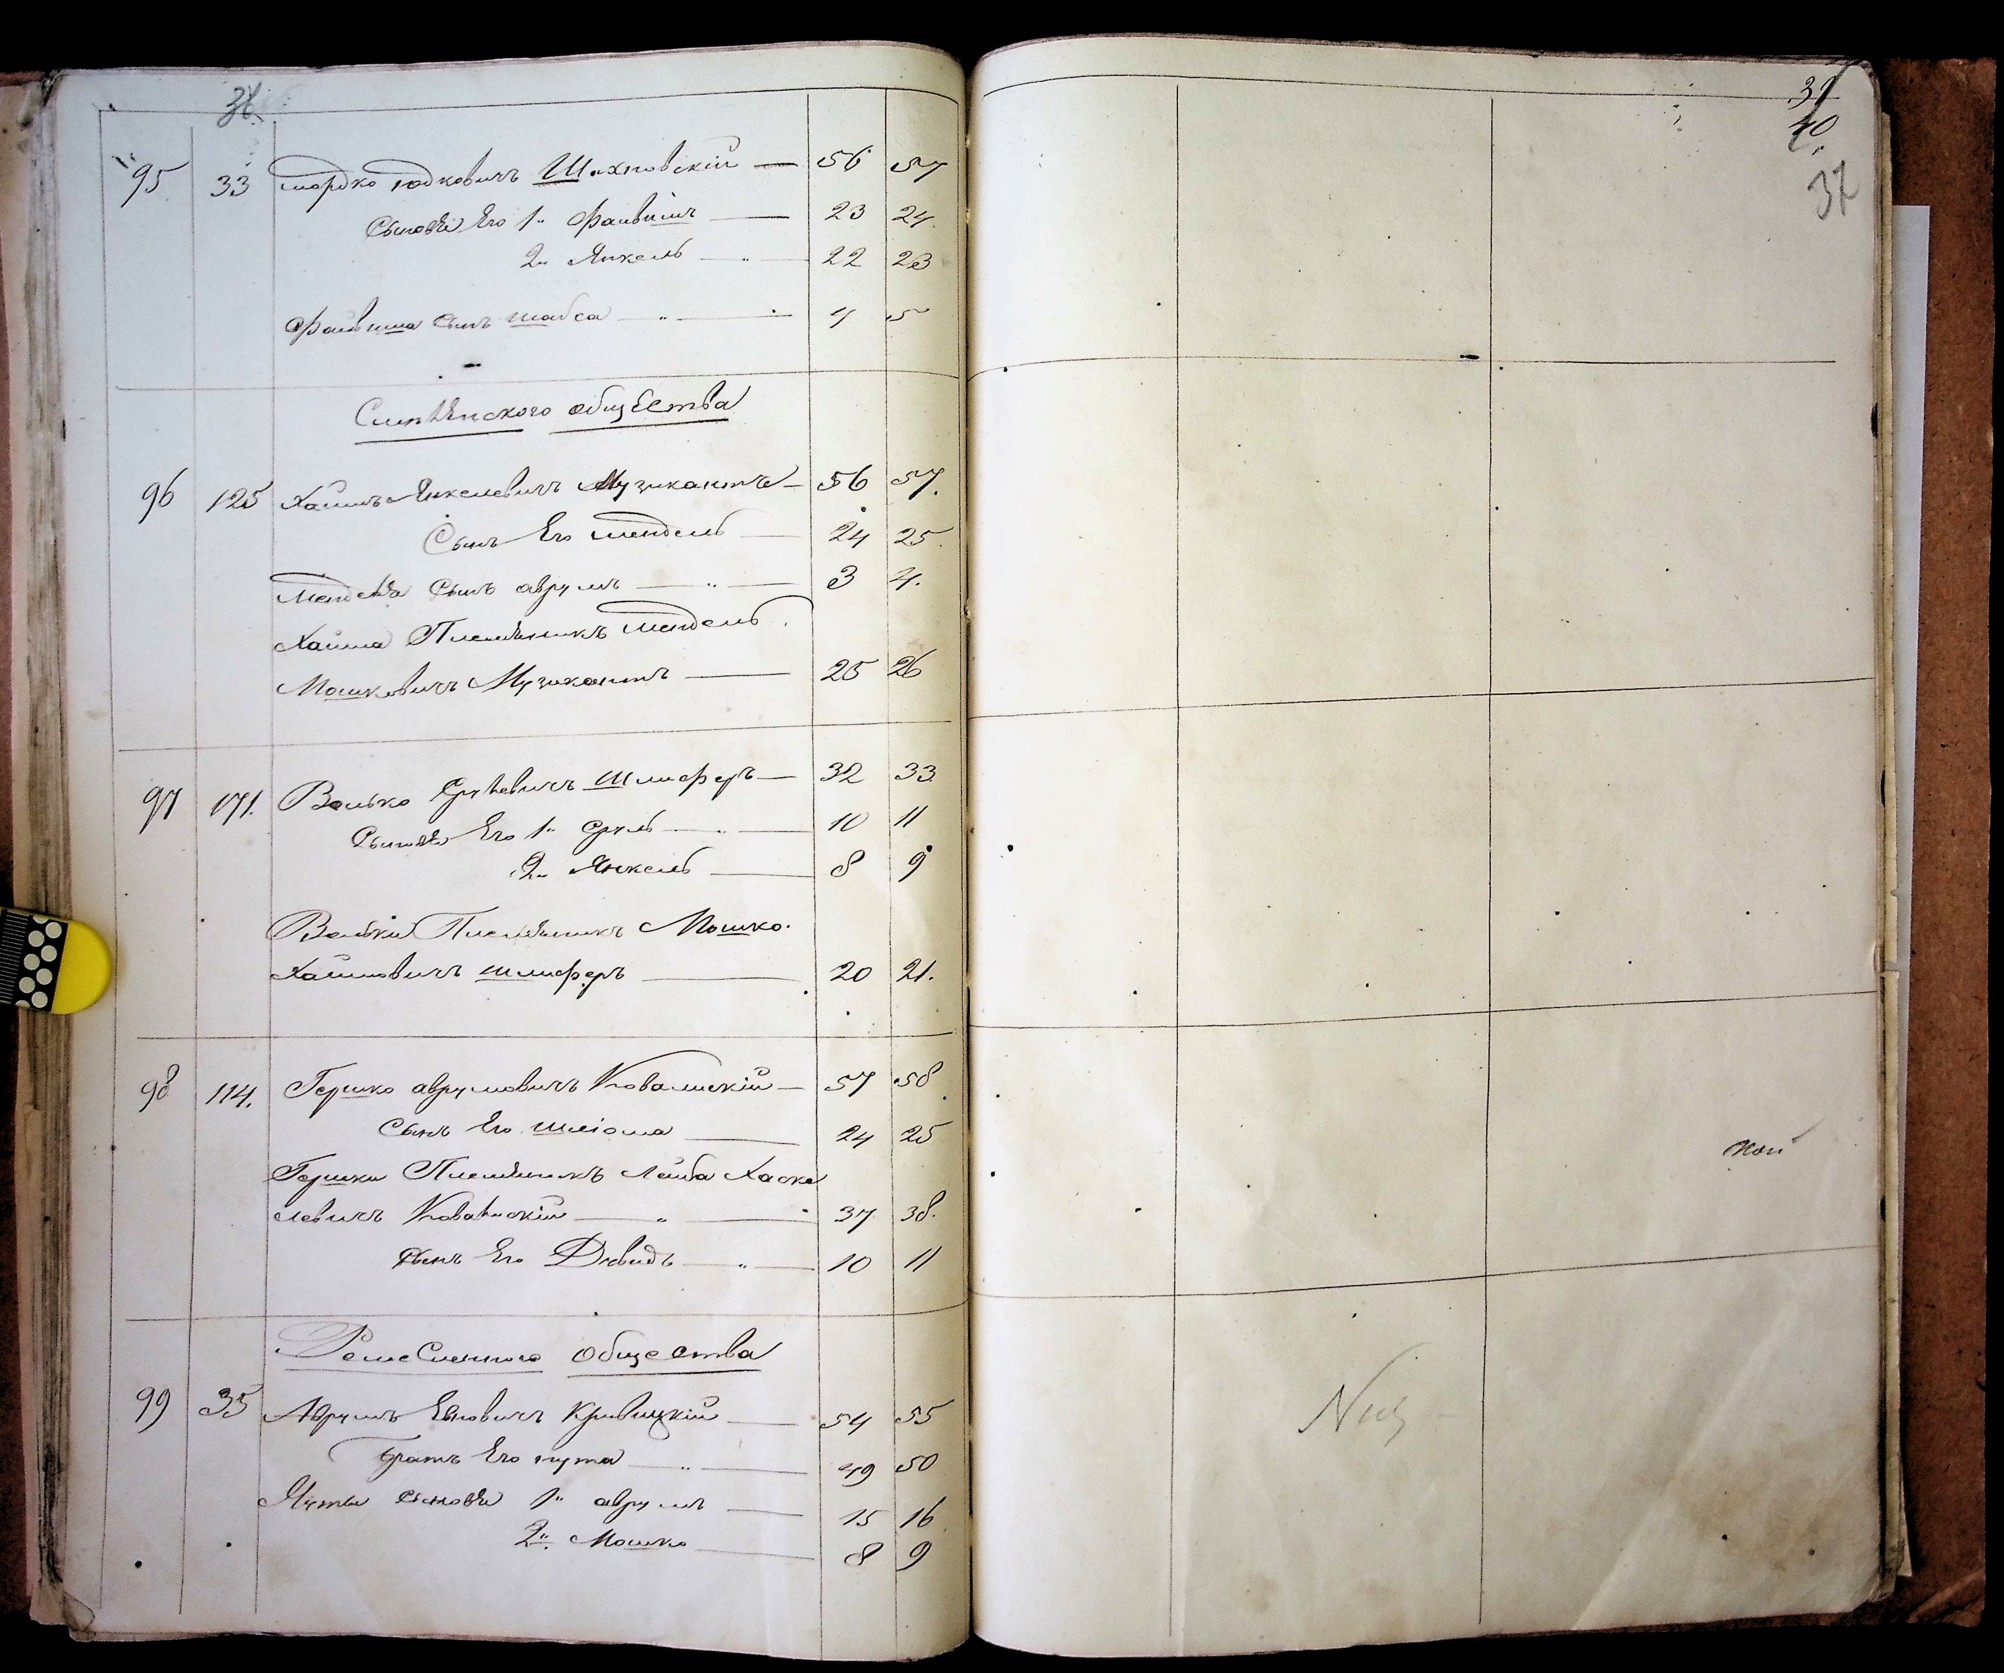 36
95 33 Мордко Іодковичъ Шахновскій — 56 57
Сыновья Его 1. Файвишъ — 23 24.
2. Янкель — " — 22 23
Файвиша сынъ Шабса — " — 4 5
общества
96 125 Хаимъ Янкелевичъ Музикантъ — 56 57.
Сынъ Его Мендель — 24 25.
Менделя Сынъ аврумъ — " — 3 4.
Хаима Племянникъ Мендель.
Мошковичъ Музикантъ — 25 26
97 171. Волько Шлиферъ — 32 33.
Сыновья Его 1. Сруль — " — 10 11
2. Янкель — 8 9
Вольки Племянникъ Мошко.
Хаимовичъ шлиферъ — 20 21.
98 114. Гершко аврумовичъ Ковальскій — 57 58.
Сынъ Его шліома — 24 25
Гершки Племянникъ Лейба Хаске
левичъ Ковальскій — " — 37 38.
сынъ Его Давидъ — " — 10 11
Ремесленного общества
99 35 Аврумъ Евновичъ Кривицкій — 54 55
братъ Его нута — " — 49 50
Нуты сыновья 1. аврумъ — 15 16
2. Мошко — 8 9
40
37
кой